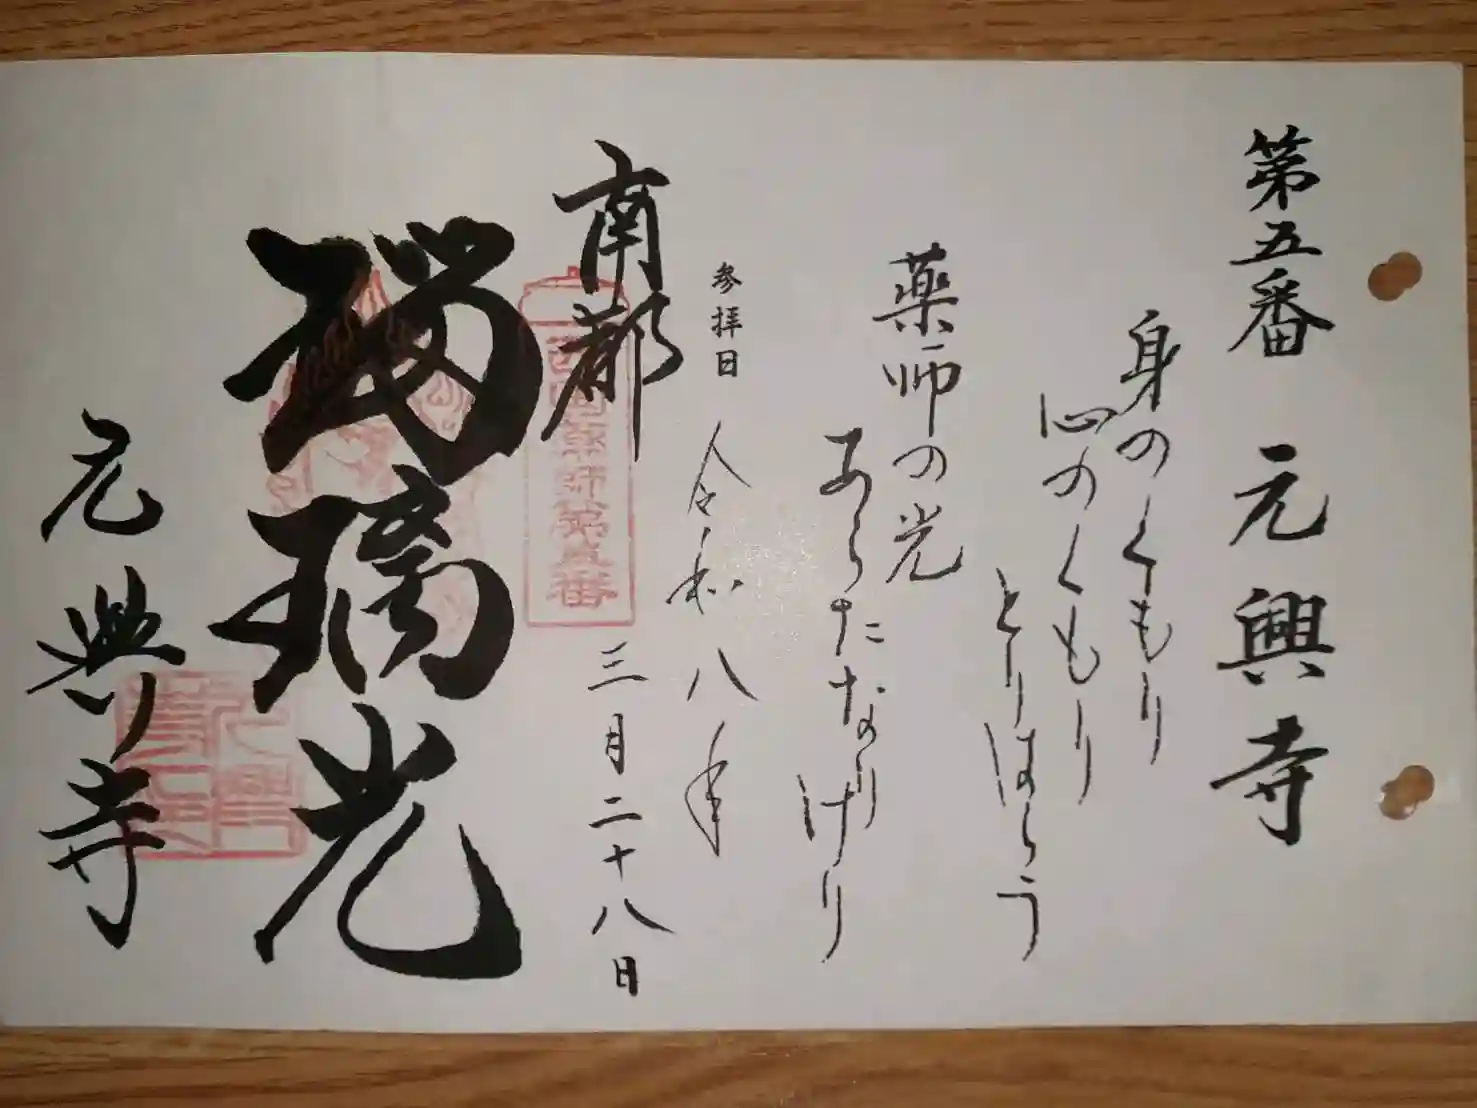 第五番 元興寺
身のくもり
心のくもり
とりはらう
薬師の光
あらたなりけり
参拝日 令和八年
三月二十八日
南都
西国薬師第五番
瑠璃光
元興寺